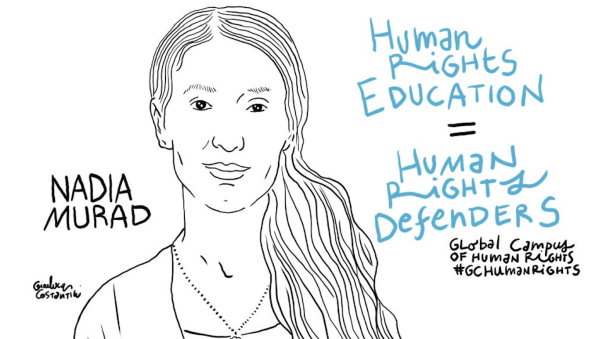 NADIA
MURAD
Gianluca
Costantini
Human
Rights
Education
=
Human
Rights
Defenders
Global Campus
of Human Rights
#GCHumanRights